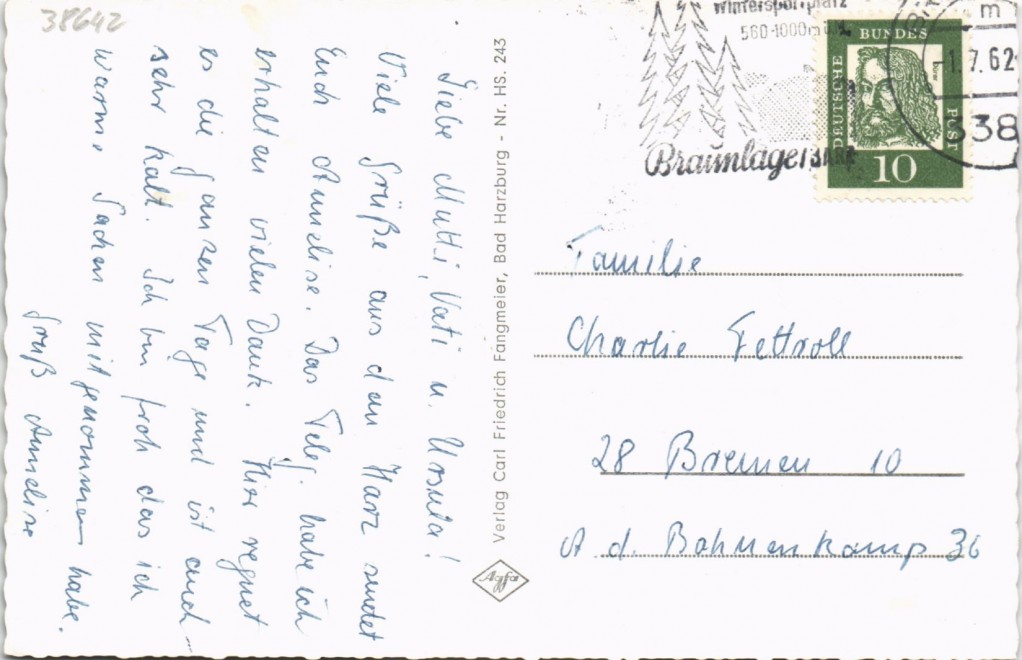 38642
Liebe Mutti, Vati u. Ursula!
Viele Grüße aus dem Harz sendet
Euch Annelise. Das Teleg. habe ich
erhalten vielen Dank. Hier regnet
es die ganzen Tage und ist auch
sehr kalt. Ich bin froh das ich
warme Sachen mitgenommen habe.
Gruß Annelise
Verlag Carl Friedrich Fangmeier, Bad Harzburg - Nr. HS. 243
Agfa
Wintersportplatz
560-1000m
Braunlage/
-1.7.62
m
338
DEUTSCHE
BUNDES
POST
10
Familie
Charlie Fettroll
28 Bremen 10
A d. Bohnenkamp 36